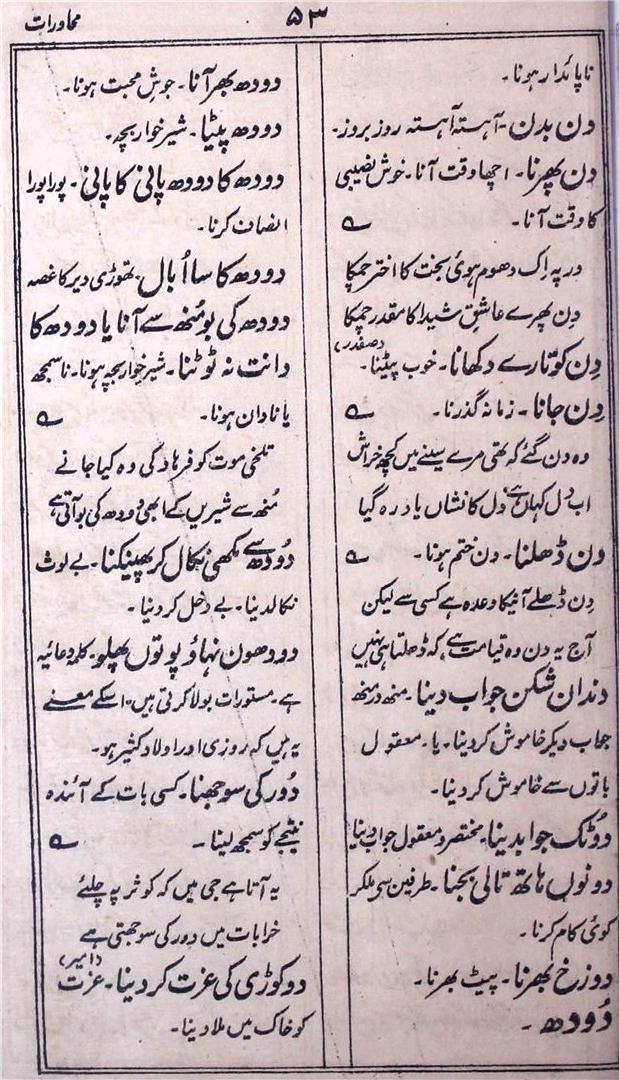 محاورات
۵۳
ناپائدار ہونا۔
دن بدن۔ آہستہ آہستہ روز بروز۔
دن پھرنا۔ اچھا وقت آنا۔ خوش نصیبی
کا وقت آنا۔ ؎
در پہ اِک دھوم ہوئی بخت کا اختر چمکا
دِن پھرے عاشقِ شیدا کا مقدر چمکا
(صفدر)
دِن کو تارے دکھانا۔ خوب پیٹنا۔
دِن جانا۔ زمانہ گذرنا۔ ؎
وہ دن گئے کہ تھی مرے سینے میں کچھ خراش
اب دل کہاں ہے دل کا نشاں یاد رہ گیا
دن ڈھلنا۔ دن ختم ہونا۔ ؎
دِن ڈھلے آنیکا وعدہ ہے کسی سے لیکن
آج یہ دن وہ قیامت ہے کہ ڈھلتا ہی نہیں
دندان شکن جواب دینا۔ منھ در منھ
جواب دیکر خاموش کر دینا۔ یا۔ معقول
باتوں سے خاموش کر دینا۔
دوٹک جواب دینا۔ مختصر و معقول جواب دینا
دونوں ہاتھ تالی بجنا۔ طرفین سی ملکر
کوئی کام کرنا۔
دوزخ بھرنا۔ پیٹ بھرنا۔
دُودھ۔
دودھ بھر آنا۔ جوشِ محبت ہونا۔
دودھ پیتا۔ شیر خوار بچہ۔
دودھ کا دودھ پانی کا پانی۔ پورا پورا
انصاف کرنا۔
دودھ کا سا اُبال۔ تھوڑی دیر کا غصہ
دودھ کی بو مُنھ سے آنا یا دودھ کا
دانت نہ ٹوٹنا۔ شیر خوار بچہ ہونا۔ ناسمجھ
یا نادان ہونا۔ ؎
تلخی موت کو فرہاد کی وہ کیا جانے
مُنھ سے شیریں کے ابھی دودھ کی بو آتی ہے
دُودھ سے مکھی نکال کر پھینکنا۔ بے لوث
نکالدینا۔ بے دخل کر دینا۔
دودھون نہاؤ پوتوں پھلو۔ کلمہ دعائیہ
ہے۔ مستورات بولا کرتی ہیں۔ اسکے معنے
یہ ہیں کہ روزی اور اولاد کثیر ہو۔
دُور کی سوجھنا۔ کسی بات کے آئندہ
نتیجے کو سمجھ لینا۔ ؎
یہ آتا ہے جی میں کہ کوثر پہ چلئے
خرابات میں دور کی سوجھتی ہے
(امیر)
دو کوڑی کی عزت کر دینا۔ عزت
کو خاک میں ملا دینا۔